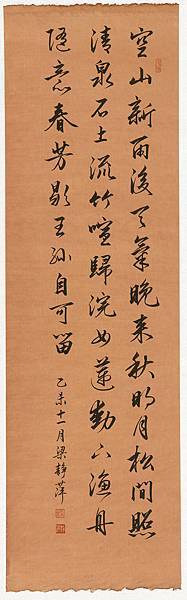 空山新雨後天氣晚来秋明月松間照
清泉石上流竹喧歸浣女蓮動下漁舟
隨意春芳歇王孫自可留
乙未十一月梁静萍